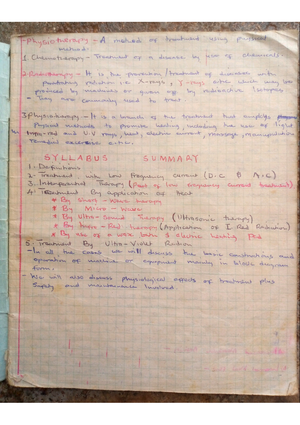 - Physiotherapy - A method of treatment using physical method.
1. Chemotherapy - Treatment of a disease by use of chemicals
2. Radiotherapy - It is the prevention/treatment of disease with penetrating radiation i.e. X-rays, γ-rays which may be produced by machines or given off by radioactive isotopes
- They are commonly used to treat
3. Physiotherapy - It is a branch of the treatment that employs physical methods to promote healing including the use of light infra-red and U.V rays, heat, electric current, massage, manipulation
SYLLABUS SUMMARY
1. Definitions
2. Treatment with Low frequency current (D.C & A.C)
3. Interferential Therapy (Part of low frequency current treatment)
4. Treatment By application of Heat
* By Short-Wave therapy
* By Micro-Wave
* By Ultra-Sound Therapy (Ultrasonic therapy)
* By Infra-Red therapy (Application of I-Red Radiation)
* By use of wax bath & electric heating Pad
5. Treatment By Ultra-Violet Radiation
- In all the cases we will discuss the basic constructions and operation of machine or equipment mainly in block diagram form.
- We will also discuss physiological effects of treatment plus Safety and maintenance involved.